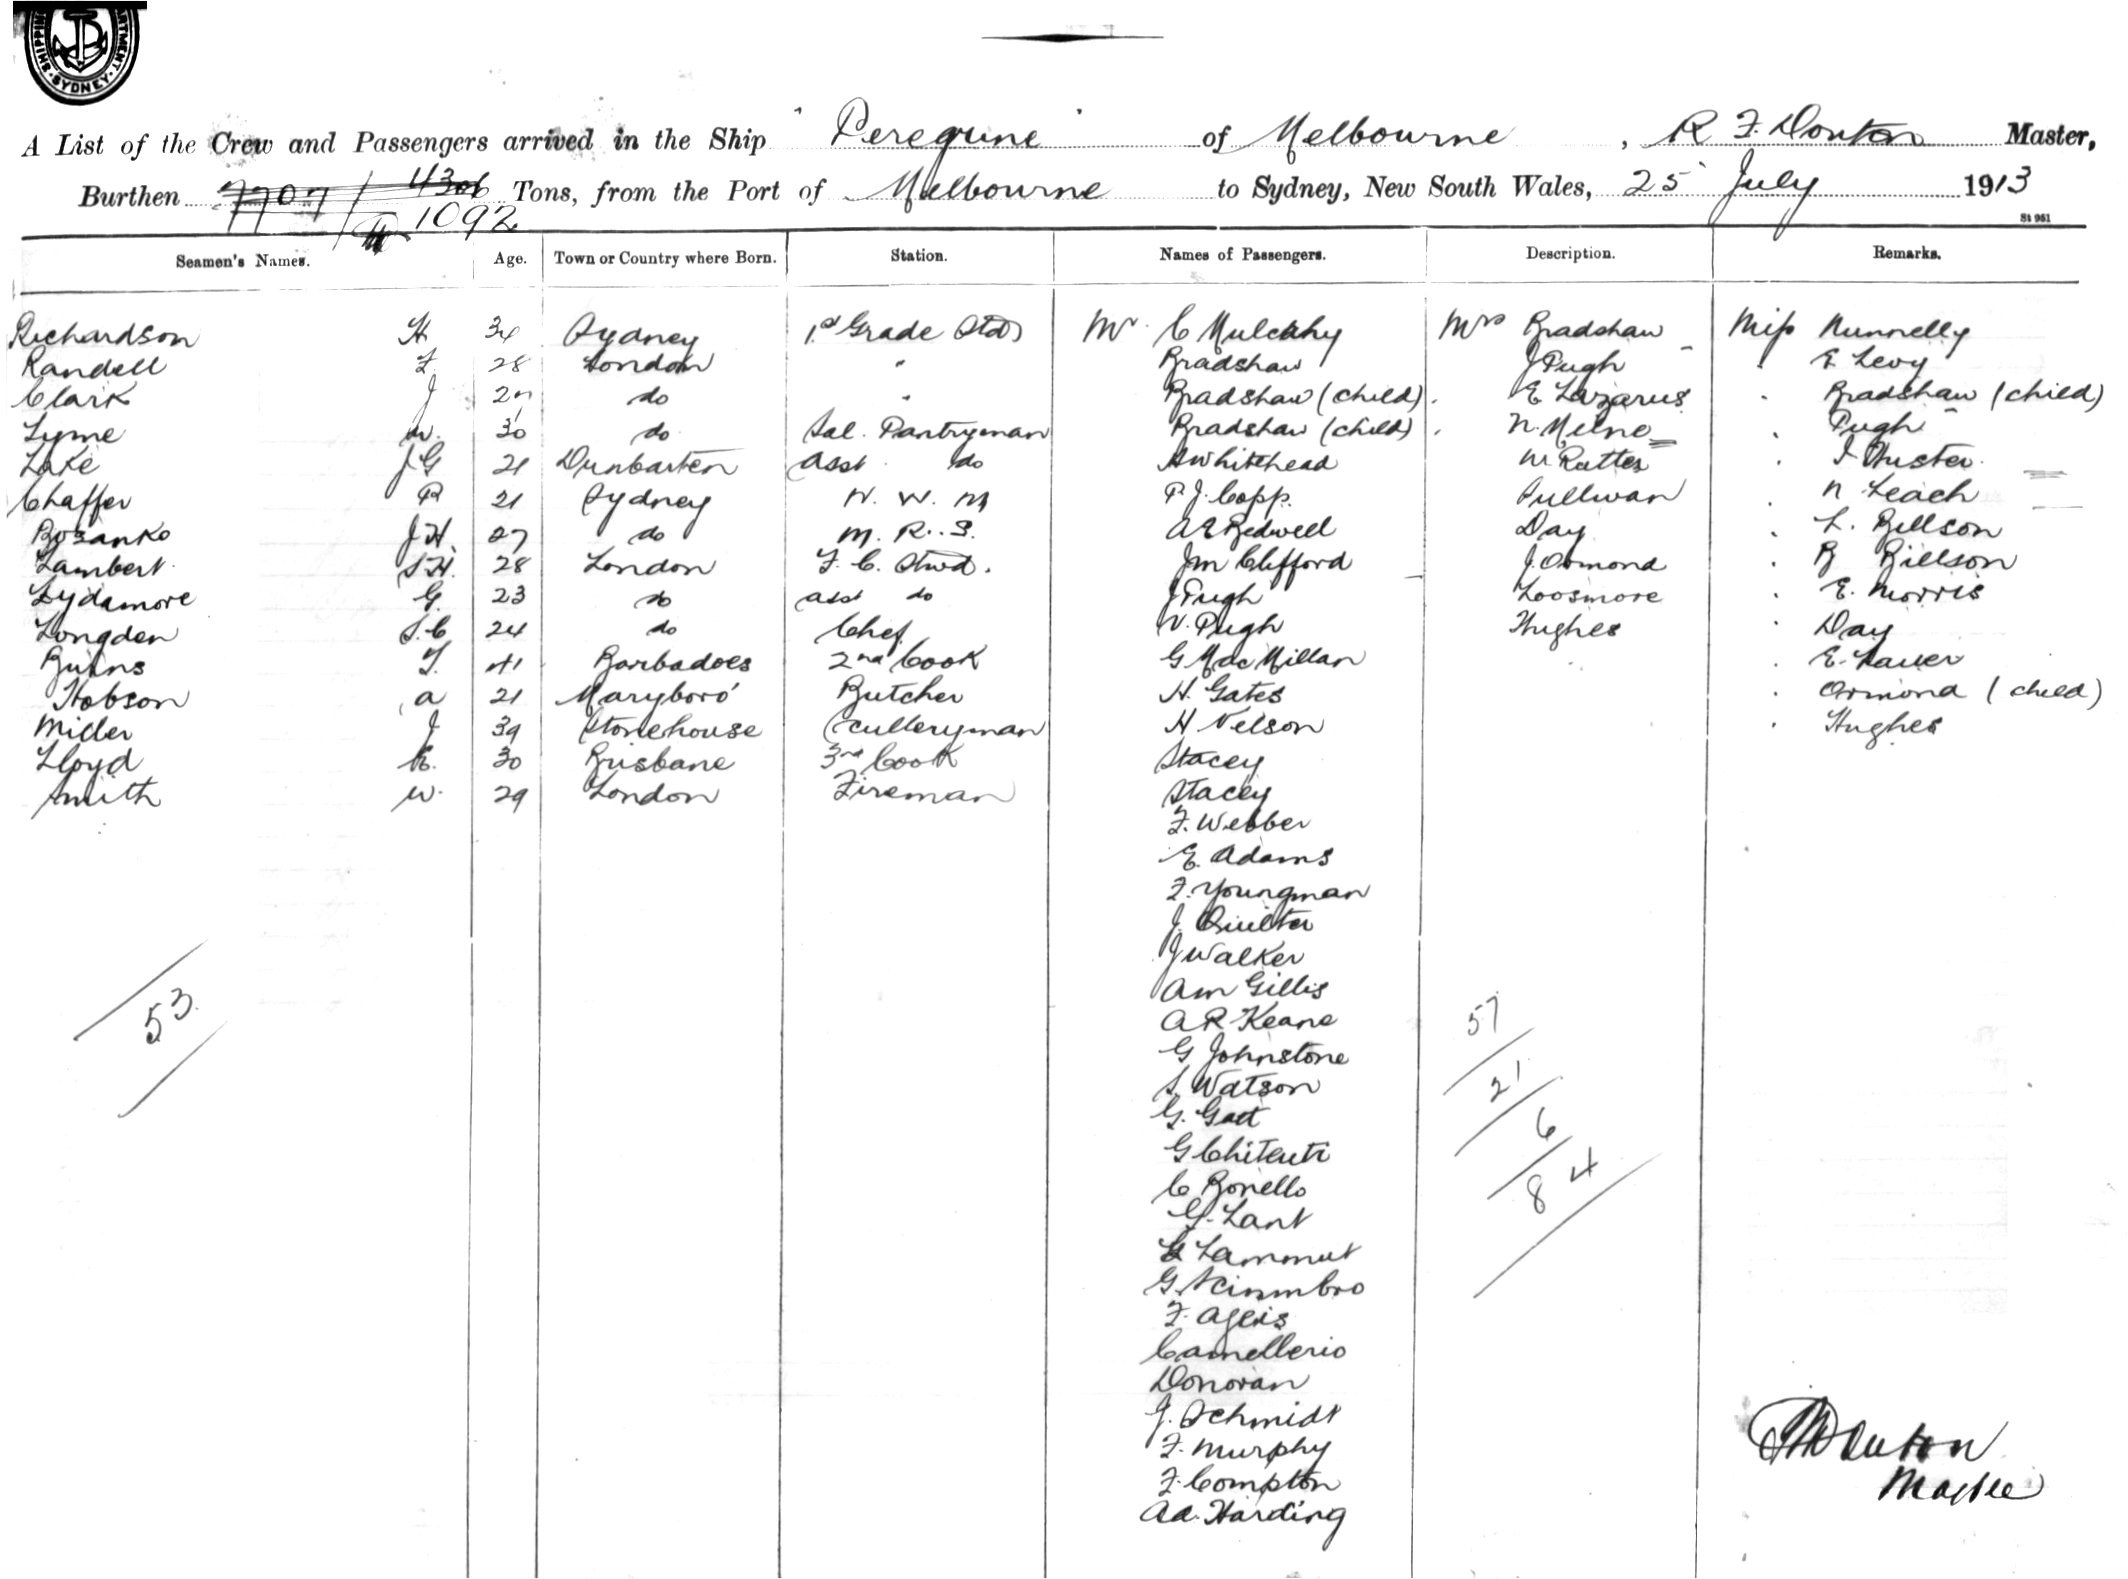 SHIPPING DEPARTMENT · SYDNEY ·
A List of the Crew and Passengers arrived in the Ship "Peregrine" of Melbourne, R F. Donton Master,
Burthen 1092 Tons, from the Port of Melbourne to Sydney, New South Wales, 25 July 1913
St 961
Seamen's Names. Age. Town or Country where Born. Station. Names of Passengers. Description. Remarks.
Richardson H 34 Sydney 1st Grade Std Mr C Mulcahy Mrs Bradshaw Miss Nunnelly
Randell F. 28 London " Bradshaw J Pugh E Levy
Clark J do " Bradshaw (child) E Lazarus Bradshaw (child)
Lyme W. 30 do Sal. Pantryman Bradshaw (child) N. Milne Pugh
Lake J G 21 Dunbarten Asst do A Whitehead W Rutter I Huster
Chaffer R 21 Sydney N. W. M P. J. Copp. Sullivan N Leach
Bosanko J H. 27 do M. R. S. A E Bedwell Day L. Billson
Lambert S H. 28 London F. C. Stwd. Jm Clifford J. Ormond R Billson
Lydamore G. 23 do asst do J Pugh Loosmore E. Morris
Longden S. C 24 do Chef V. Pugh Hughes Day
Burns T. 41 Barbadoes 2nd Cook G MacMillan E. Lauer
Hobson A 21 Maryboro' Butcher H. Gates Ormond (child)
Miller J 39 Stonehouse Sculleryman H Nelson Hughes
Lloyd E. 30 Brisbane 3rd Cook Stacey
Smith W. 29 London Fireman Stacey
F. Webber
E. Adams
F. Youngman
J. Quilter
J Walker
Am Gillis
53
A R Keane
57
G Johnstone
S. Watson
21
G. Gatt
6
G Chitcuti
C Bonello
84
G. Lant
Lammut
G. Scimmbro
F. Ageis
Camellerio
Donovan
J. Schmidt
F. Murphy
F. Compton
Aa. Harding
Donton
Master